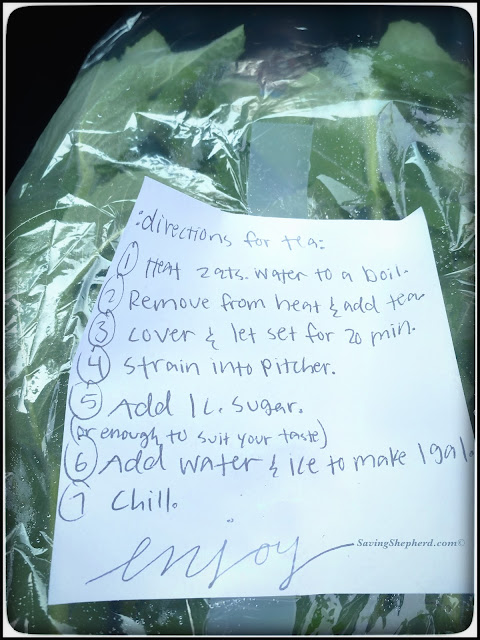 :directions for tea:
① Heat 2 qts. water to a boil.
② Remove from heat & add tea
③ cover & let set for 20 min.
④ Strain into pitcher.
⑤ Add 1 c. sugar.
(or enough to suit your taste)
⑥ Add water & ice to make 1 gal.
⑦ Chill.
enjoy
SavingShepherd.com©